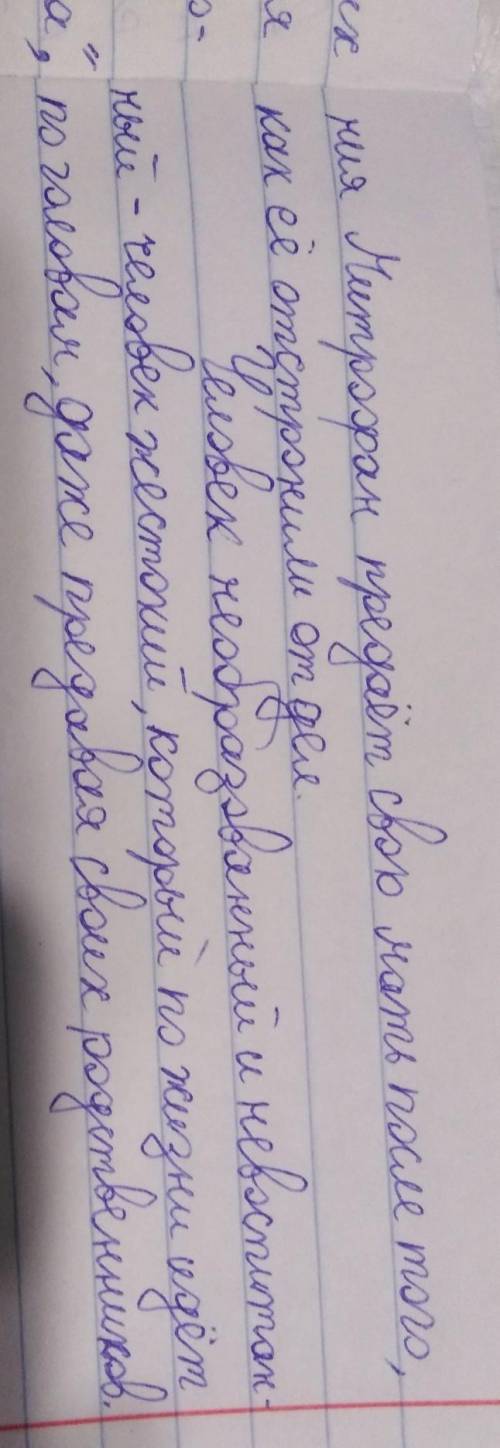 я
о-
а"
ния Митрофан предаёт свою мать после того,
как её отстранили от дел.
Человек необразованный и невоспитан-
ный - человек жестокий, который по жизни идёт
по головам, даже предавая своих родственников.